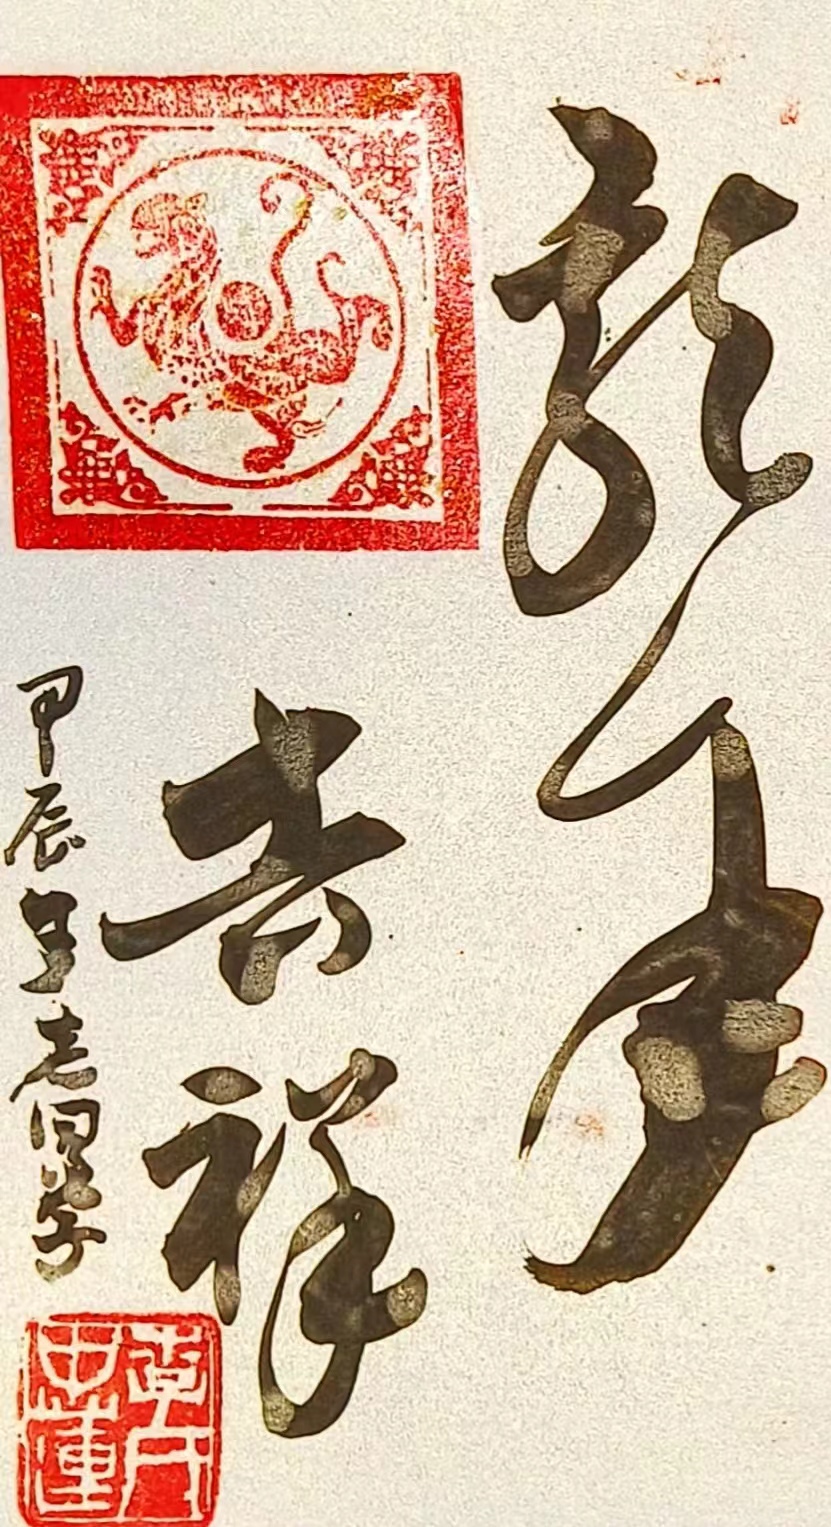 龍年
吉祥
甲辰年老同学